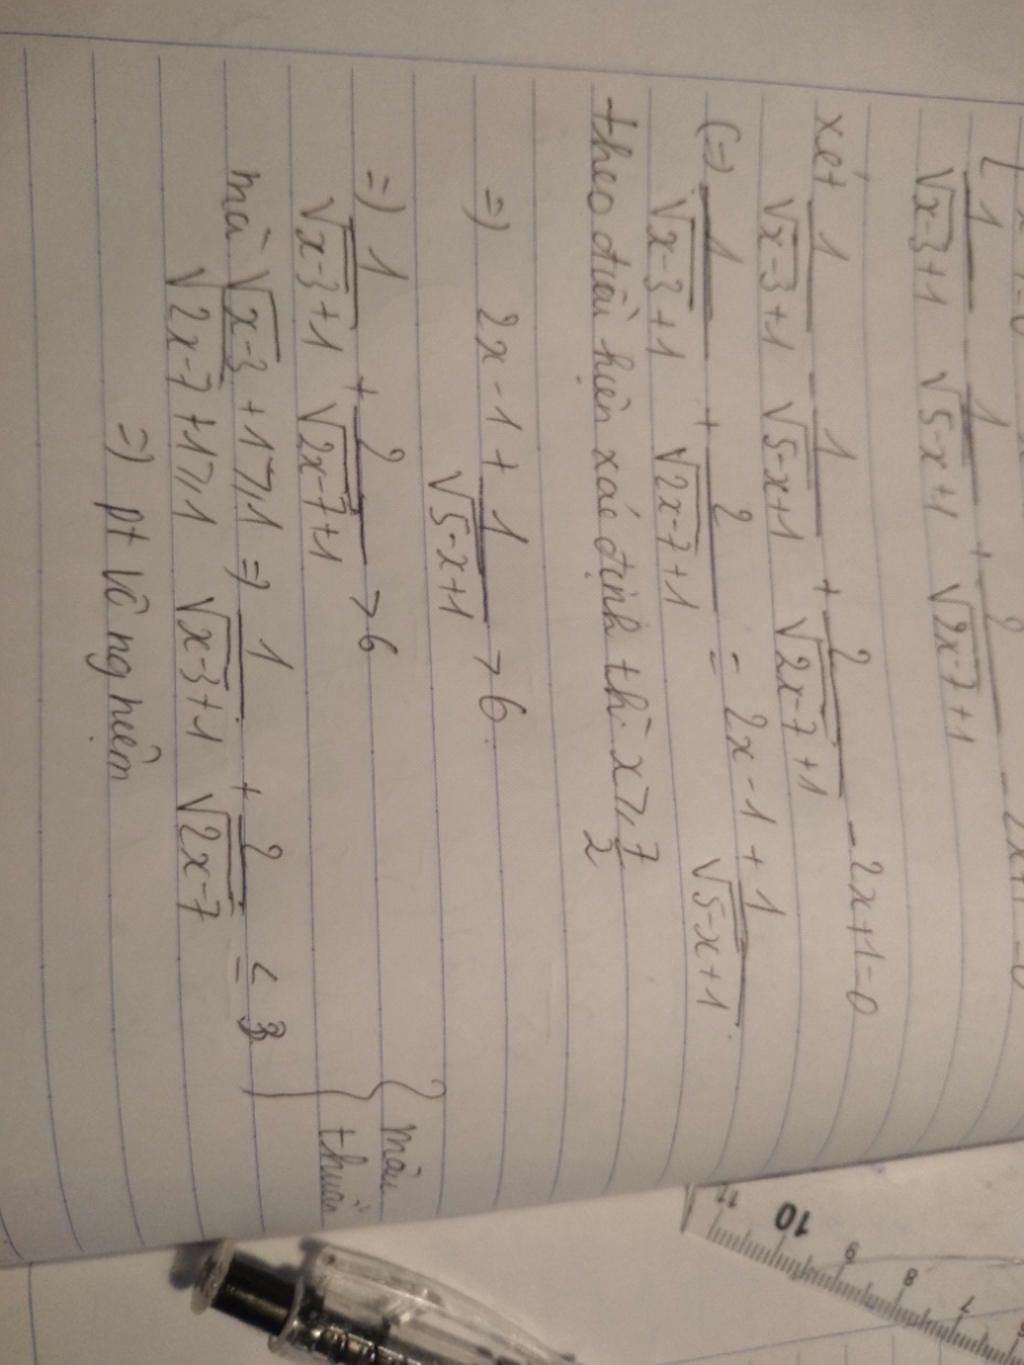 1/(√x-3+1) - 1/(√5-x+1) + 2/(√2x-7+1)
xét 1/(√x-3+1) - 1/(√5-x+1) + 2/(√2x-7+1) - 2x+1=0
(=) 1/(√x-3+1) + 2/(√2x-7+1) = 2x-1 + 1/(√5-x+1)
theo điều kiện xác định thì x ≥ 7/2
=) 2x-1 + 1/(√5-x+1) > 6
=) 1/(√x-3+1) + 2/(√2x-7+1) > 6
mà √x-3+1 ≥ 1 =) 1/(√x-3+1) + 2/√2x-7 ≤ 3
√2x-7+1 ≥ 1
mâu
thuẫn
=) pt vô nghiệm
10
9
8
7